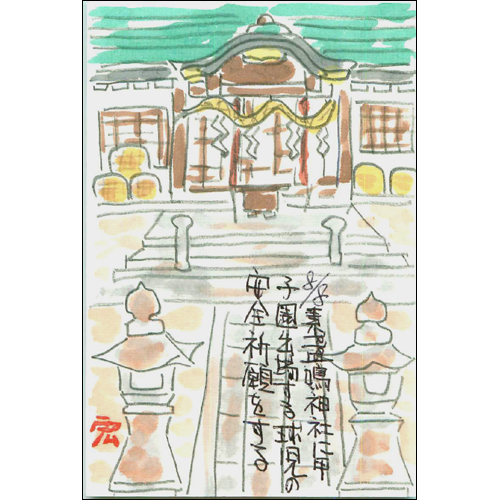 8/8素盞嗚神社に甲
子園出場する球児の
安全祈願をする
宏